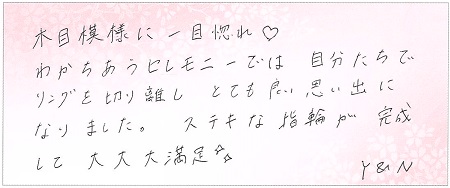 木目模様に 一目惚れ♡
わかちあうセレモニーでは 自分たちで
リングを切り離し とても良い思い出に
なりました。 ステキな指輪が 完成
して 大大大満足☆☆
Y&N